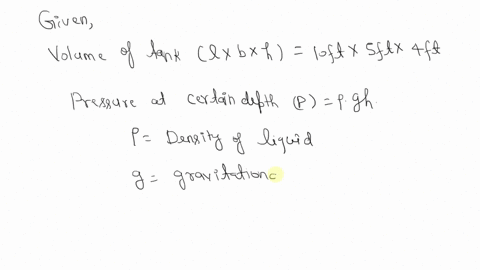 Given,
Volume of tank (l x b x h) = 10ft x 5ft x 4ft
Pressure at certain depth (P) = ρ.gh.
ρ = Density of liquid
g = gravitation